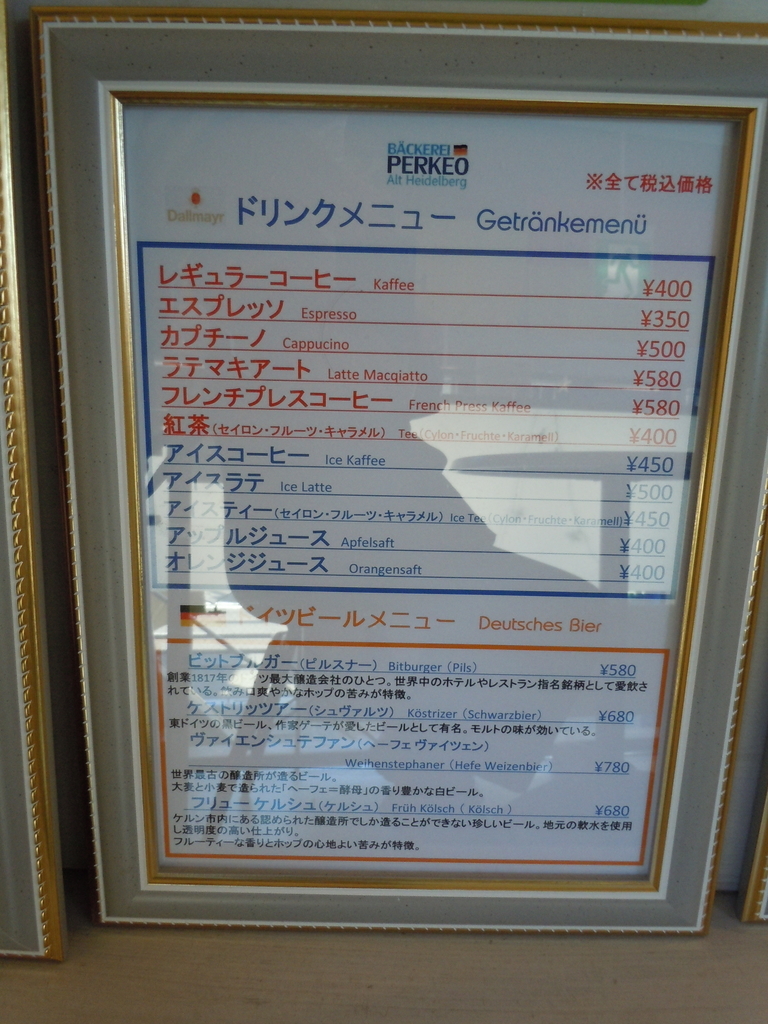 BÄCKEREI
PERKEO
Alt Heidelberg
※全て税込価格
Dallmayr ドリンクメニュー Getränkemenü
レギュラーコーヒー Kaffee ¥400
エスプレッソ Espresso ¥350
カプチーノ Cappucino ¥500
ラテマキアート Latte Macqiatto ¥580
フレンチプレスコーヒー French Press Kaffee ¥580
紅茶(セイロン・フルーツ・キャラメル) Tee(Cylon・Fruchte・Karamell) ¥400
アイスコーヒー Ice Kaffee ¥450
アイスラテ Ice Latte ¥500
アイスティー(セイロン・フルーツ・キャラメル) Ice Tea(Cylon・Fruchte・Karamell) ¥450
アップルジュース Apfelsaft ¥400
オレンジジュース Orangensaft ¥400
ドイツビールメニュー Deutsches Bier
ビットブルガー(ピルスナー) Bitburger (Pils) ¥580
創業1817年のドイツ最大醸造会社のひとつ。世界中のホテルやレストラン指名銘柄として愛飲さ
れている。飲み口爽やかなホップの苦みが特徴。
ケストリッツアー(シュヴァルツ) Köstrizer (Schwarzbier) ¥680
東ドイツの黒ビール、作家ゲーテが愛したビールとして有名。モルトの味が効いている。
ヴァイエンシュテファン(ヘーフェ ヴァイツェン)
Weihenstephaner (Hefe Weizenbier) ¥780
世界最古の醸造所が造るビール。
大麦と小麦で造られた「ヘーフェ=酵母」の香り豊かな白ビール。
フリュー ケルシュ(ケルシュ) Früh Kölsch ( Kölsch ) ¥680
ケルン市内にある認められた醸造所でしか造ることができない珍しいビール。地元の軟水を使用
し透明度の高い仕上がり。
フルーティーな香りとホップの心地よい苦みが特徴。